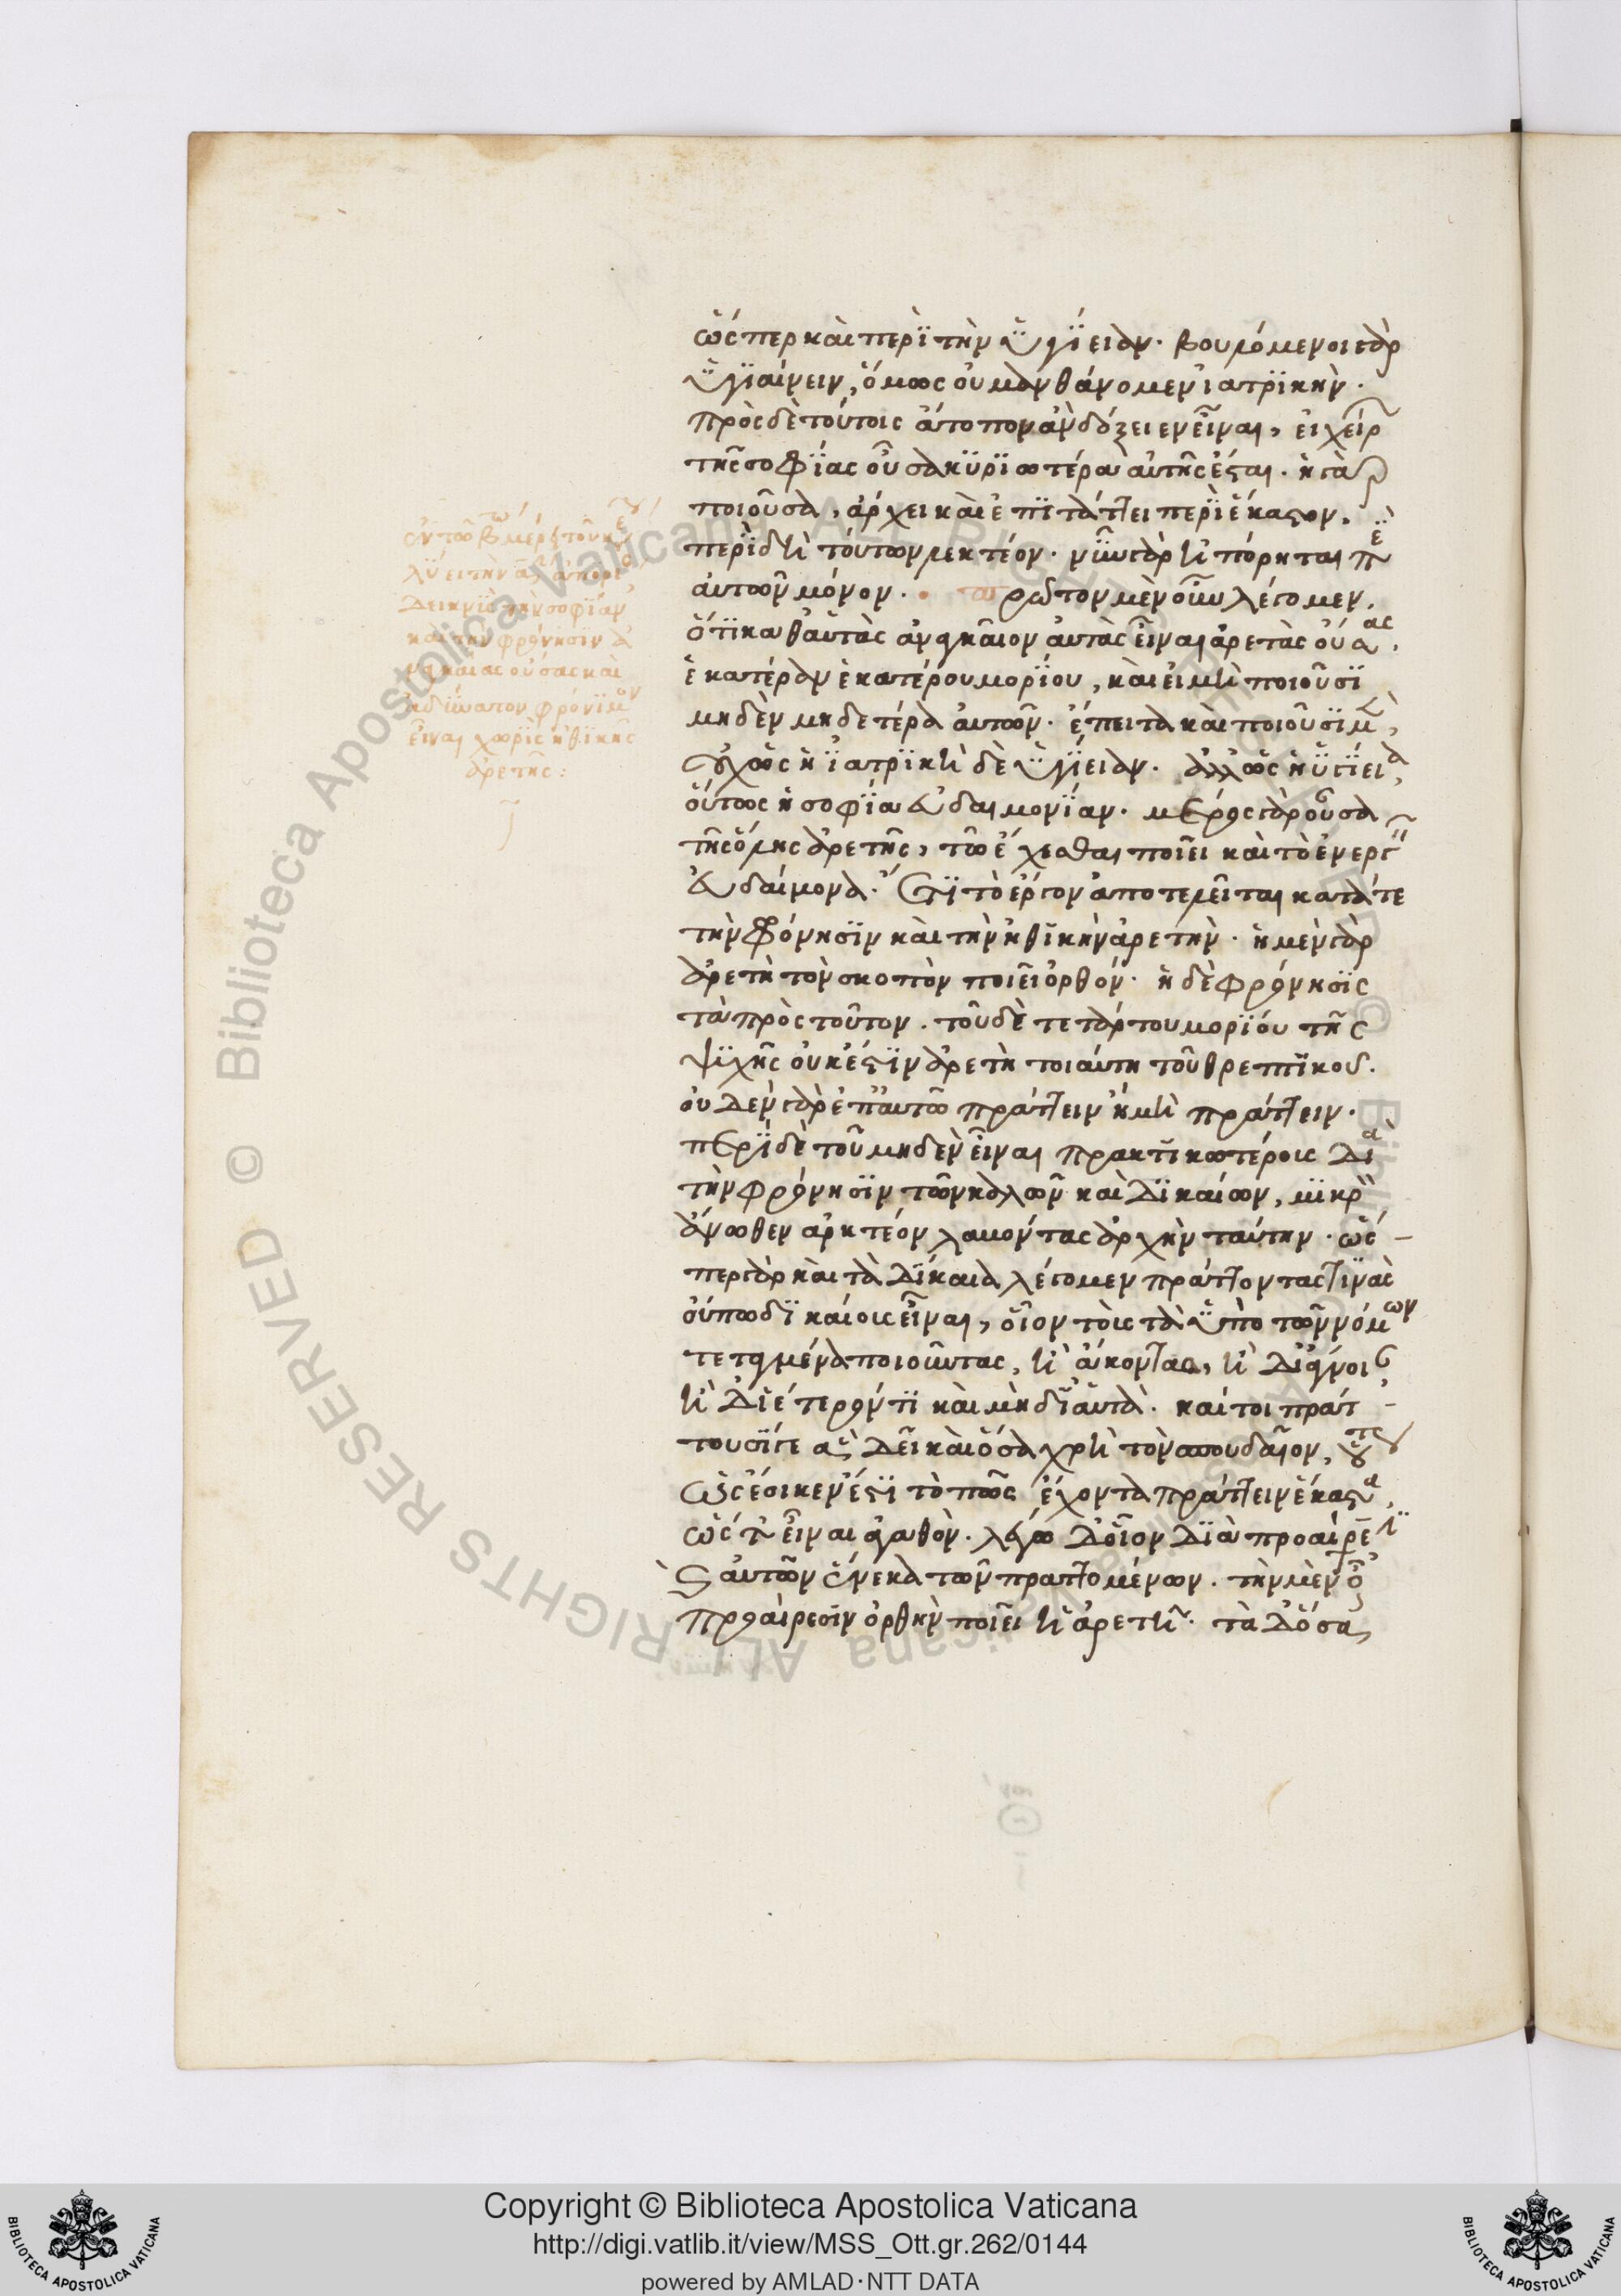 ὥσπερ καὶ περὶ τὴν ὑγίειαν. βουλόμενοι γὰρ
ὑγιαίνειν, ὅμως οὐ μανθάνομεν ἰατρικὴν.
πρὸς δὲ τούτοις ἄτοπον ἂν δόξειεν εἶναι, εἰ χείρ
τῆς σοφίας οὖσα κυριωτέρα αὐτῆς ἔσται. ἡ γὰρ
ποιοῦσα, ἄρχει καὶ ἐπιτάττει περὶ ἕκαστον.
περὶ δὴ τούτων λεκτέον. νῦν γὰρ ἠπόρηται πε
αὐτῶν μόνον. πρῶτον μὲν οὖν λέγομεν.
ὅτι καθ' αὑτὰς ἀναγκαῖον αὐτὰς εἶναι ἀρετὰς οὔσας,
ἑκατέραν ἑκατέρου μορίου, καὶ εἰ μὴ ποιοῦσι
μηδὲν μηδετέρα αὐτῶν. ἔπειτα καὶ ποιοῦσι μὲν,
οὐχ ὡς ἡ ἰατρικὴ δὲ ὑγίειαν. ἀλλ' ὡς ἡ ὑγίεια,
οὕτως ἡ σοφία εὐδαιμονίαν. μέρος γὰρ οὖσα
τῆς ὅλης ἀρετῆς, τῷ ἔχεσθαι ποιεῖ καὶ τὸ ἐνεργεῖν
εὐδαίμονα. ἔτι τὸ ἔργον ἀποτελεῖται κατά τε
τὴν φρόνησιν καὶ τὴν ἠθικὴν ἀρετὴν. ἡ μὲν γὰρ
ἀρετὴ τὸν σκοπὸν ποιεῖ ὀρθόν. ἡ δὲ φρόνησις
τὰ πρὸς τοῦτον. τοῦ δὲ τετάρτου μορίου τῆς
ψυχῆς οὐκ ἔστιν ἀρετὴ τοιαύτη τοῦ θρεπτικοῦ.
οὐδὲν γὰρ ἐπ' αὐτῷ πράττειν ἢ μὴ πράττειν.
περὶ δὲ τοῦ μηδὲν εἶναι πρακτικωτέροις διὰ
τὴν φρόνησιν τῶν καλῶν καὶ δικαίων, μικρὸν
ἄνωθεν ἀρκτέον λαμόντας ἀρχὴν ταύτην. ὥσ-
περ γὰρ καὶ τὰ δίκαια λέγομεν πράττοντας τινὰς
οὔπω δικαίους εἶναι, οἷον τοὺς τὰ ὑπὸ τῶν νόμων
τεταγμένα ποιοῦντας, ἢ ἄκοντας, ἢ δι' ἄγνοιαν,
ἢ δι' ἕτερόν τι καὶ μὴ δι' αὐτὰ. καίτοι πράτ-
τουσί γε ἃ δεῖ καὶ ὅσα χρὴ τὸν σπουδαῖον, οὕτως
ὡς ἔοικεν ἔστι τὸ πῶς ἔχοντα πράττειν ἕκαστα,
ὥστ' εἶναι ἀγαθὸν. λέγω δ' οἷον διὰ προαίρεσιν
καὶ αὐτῶν ἕνεκα τῶν πραττομένων. τὴν μὲν οὖν
προαίρεσιν ὀρθὴν ποιεῖ ἡ ἀρετὴ. τὰ δ' ὅσα
λύει τὴν
δεικνὺς τὴν σοφίαν
καὶ τὴν φρόνησιν ἀ
ναγκαίας οὔσας καὶ
ἀδύνατον φρόνιμον
εἶναι χωρὶς ἠθικῆς
ἀρετῆς:
© Biblioteca Apostolica Vaticana ALL RIGHTS RESERVED
Copyright © Biblioteca Apostolica Vaticana
http://digi.vatlib.it/view/MSS_Ott.gr.262/0144
powered by AMLAD·NTT DATA
BIBLIOTECA APOSTOLICA VATICANA
BIBLIOTECA APOSTOLICA VATICANA